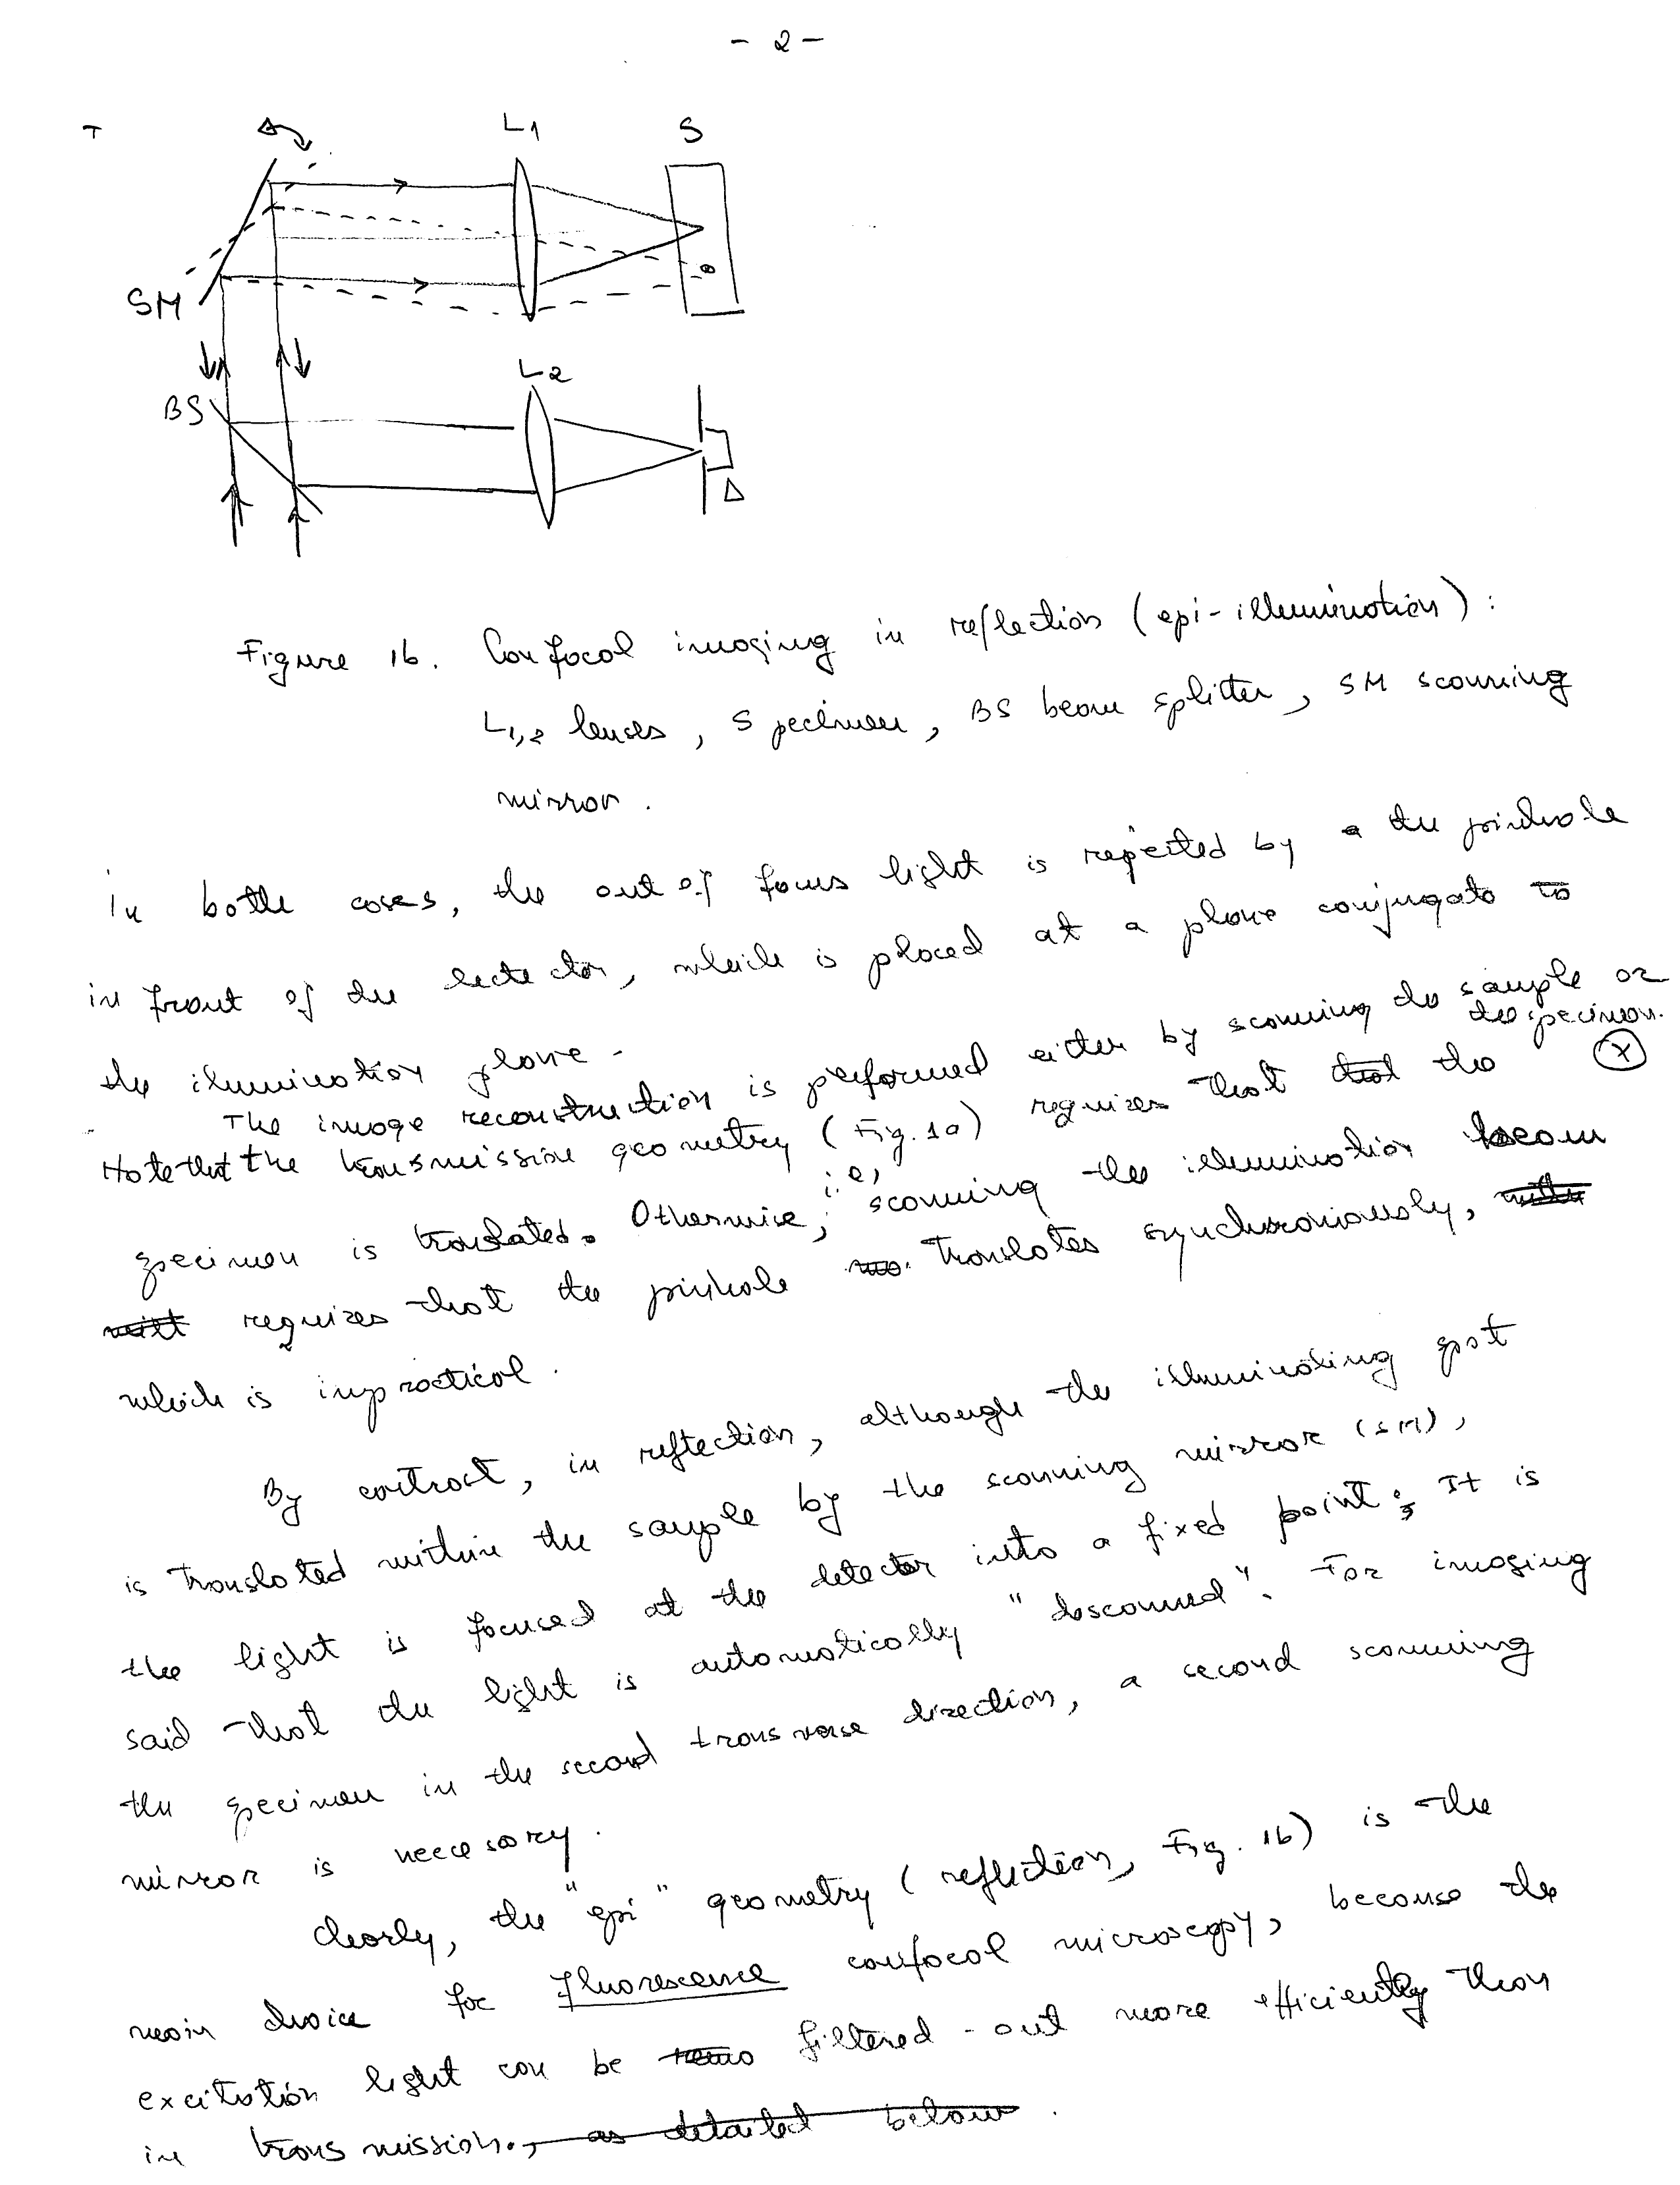 - 2 -
L1
S
SM
L2
BS
Figure 1b. Confocal imaging in reflection (epi-illumination):
L1,2 lenses, Specimen, BS beam splitter, SM scanning
mirror.
In both cases, the out of focus light is rejected by the pinhole
in front of the detector, which is placed at a plane conjugate to
the illumination plane.
The image reconstruction is performed either by scanning the sample or
the specimen.
Note that the transmission geometry (Fig. 1a) requires that the
specimen is translated. Otherwise, i.e, scanning the illumination beam
requires that the pinhole translates synchronously,
which is impractical.
By contrast, in reflection, although the illuminating spot
is translated within the sample by the scanning mirror (SM),
the light is focused at the detector into a fixed point; It is
said that the light is automatically "descanned". For imaging
the specimen in the second transverse direction, a second scanning
mirror is necessary.
Clearly, the "epi" geometry (reflection, Fig. 1b) is the
main choice for fluorescence confocal microscopy, because the
excitation light can be filtered-out more efficiently than
in transmission, as detailed below.